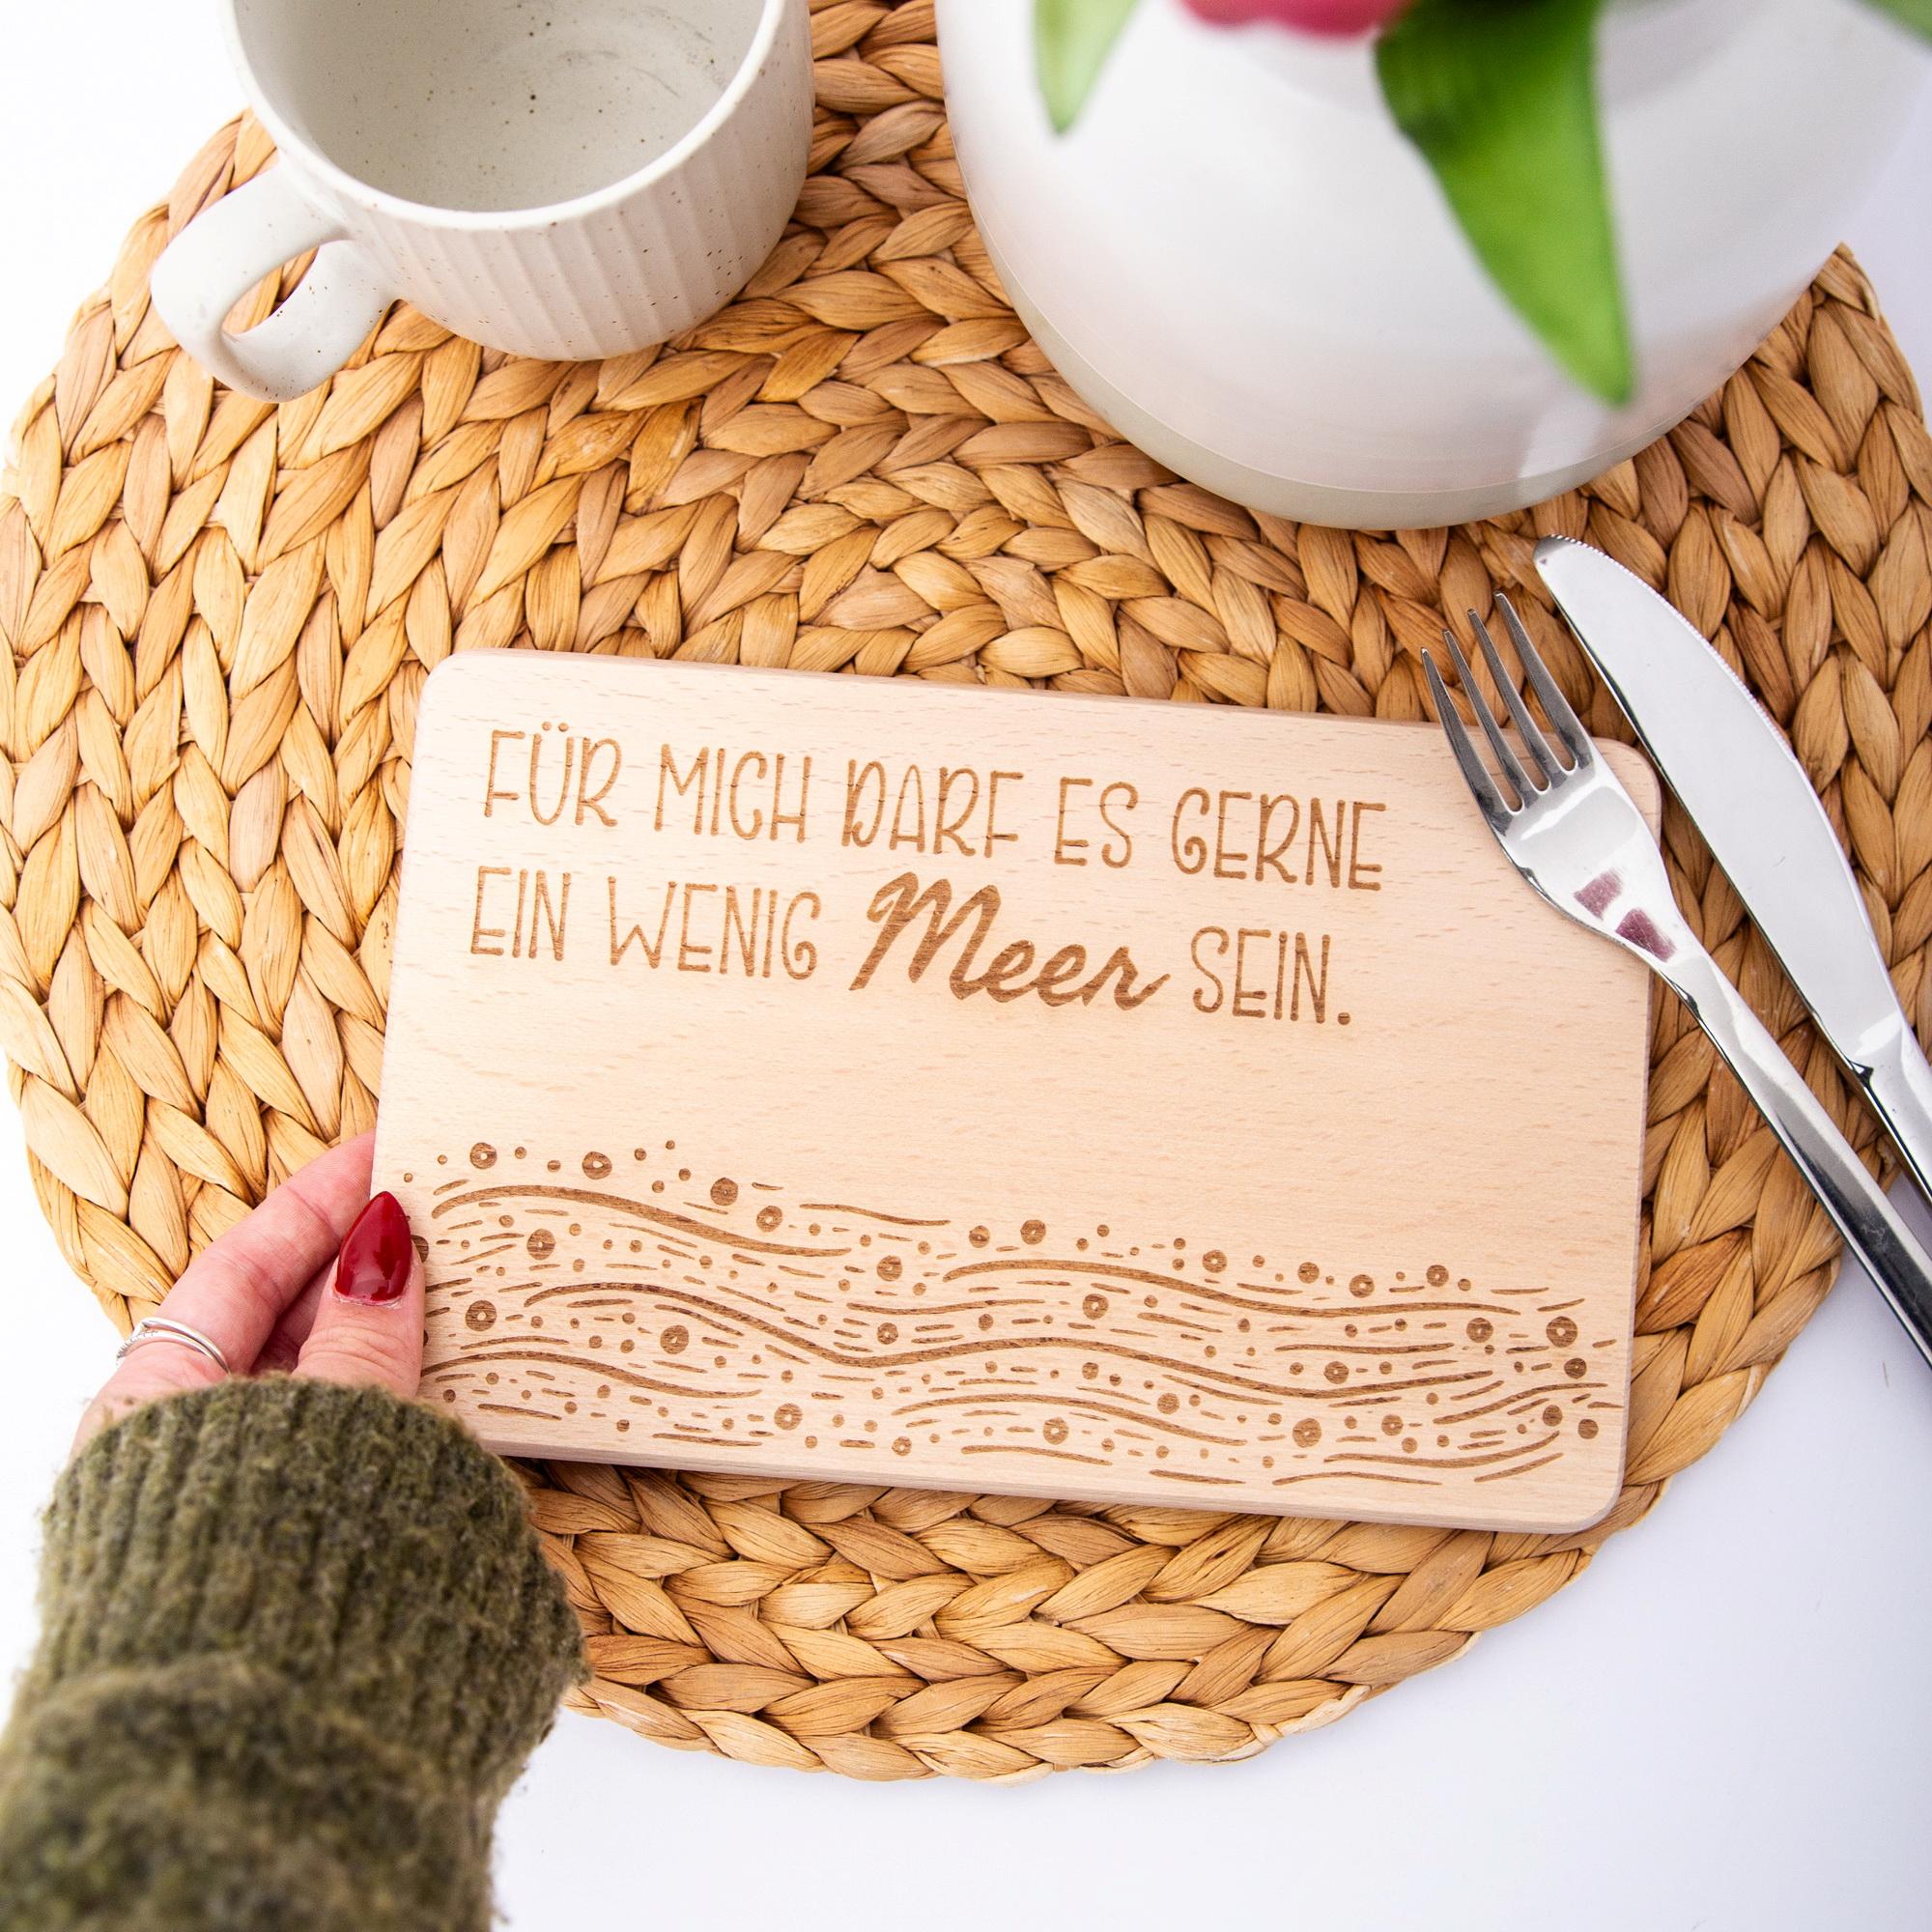 FÜR MICH DARF ES GERNE
EIN WENIG Meer SEIN.